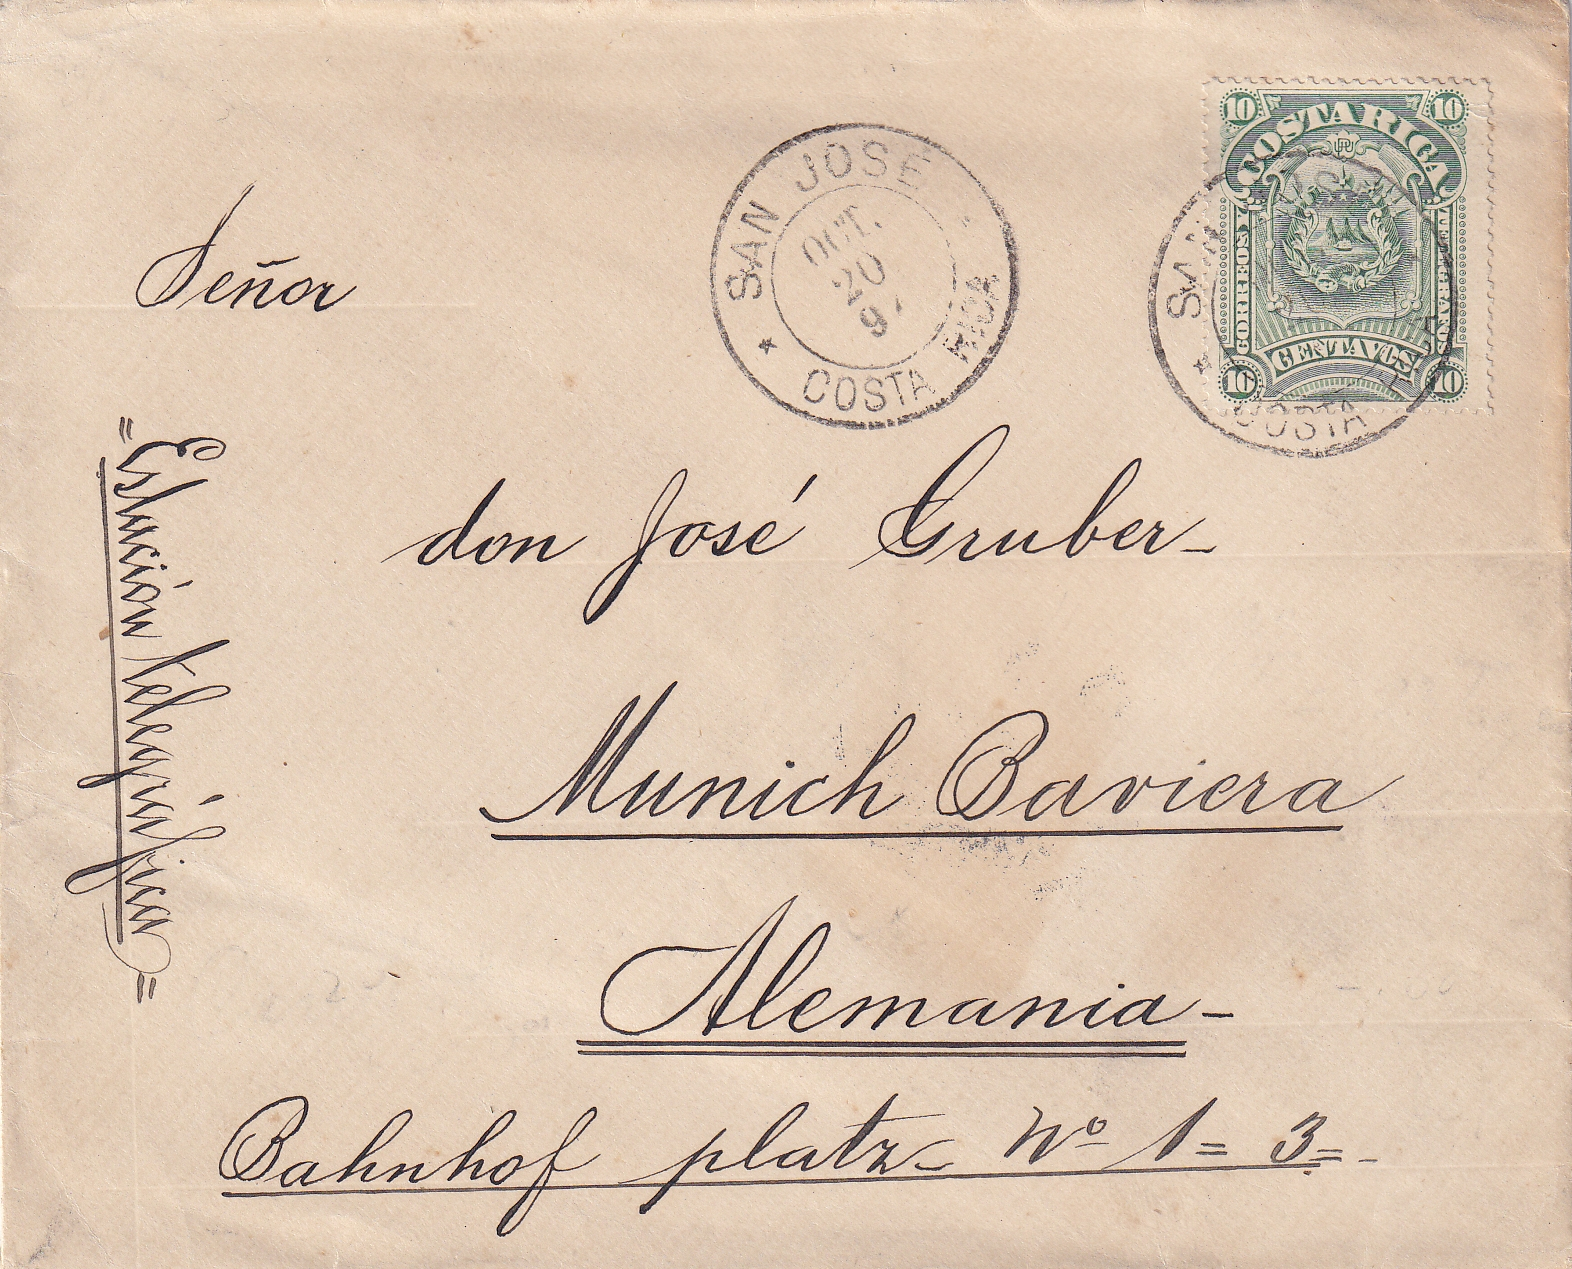 10 COSTA RICA 10
CORREOS
CENTAVOS
10 10
SAN JOSE
OCT.
20
COSTA RICA
SAN
COSTA
Señor
don José Gruber-
Munich Baviera
Alemania-
Bahnhof platz- Nº 1= 3=-
"Estación telegráfica"